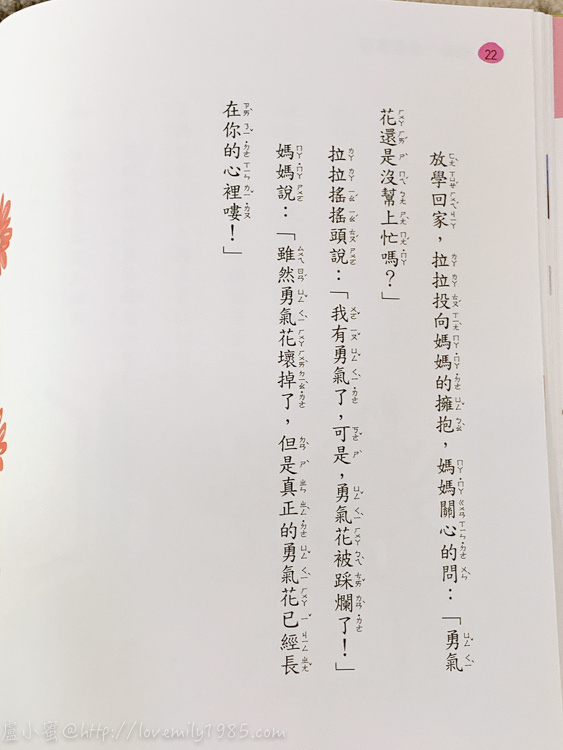 22
放學回家，拉拉投向媽媽的擁抱，媽媽關心的問：「勇氣
花還是沒幫上忙嗎？」
拉拉搖搖頭說：「我有勇氣了，可是，勇氣花被踩爛了！」
媽媽說：「雖然勇氣花壞掉了，但是真正的勇氣花已經長
在你的心裡嘍！」
盧小蜜@http://lovemily1985.com